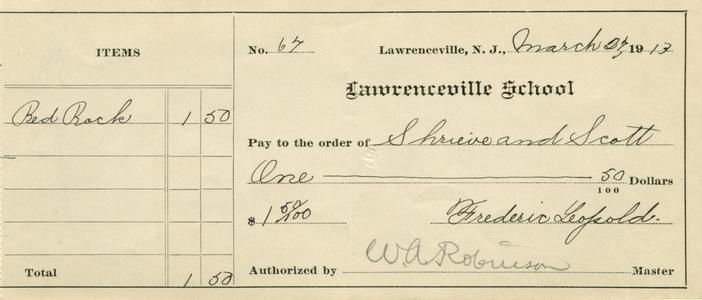 ITEMS
Bed Rock 1 50
Total 1 50
No. 67 Lawrenceville, N. J., March 27, 1913
Lawrenceville School
Pay to the order of Shrieve and Scott
One 50/100 Dollars
$ 1 50/100 Frederic Leopold.
Authorized by W A Robinson Master